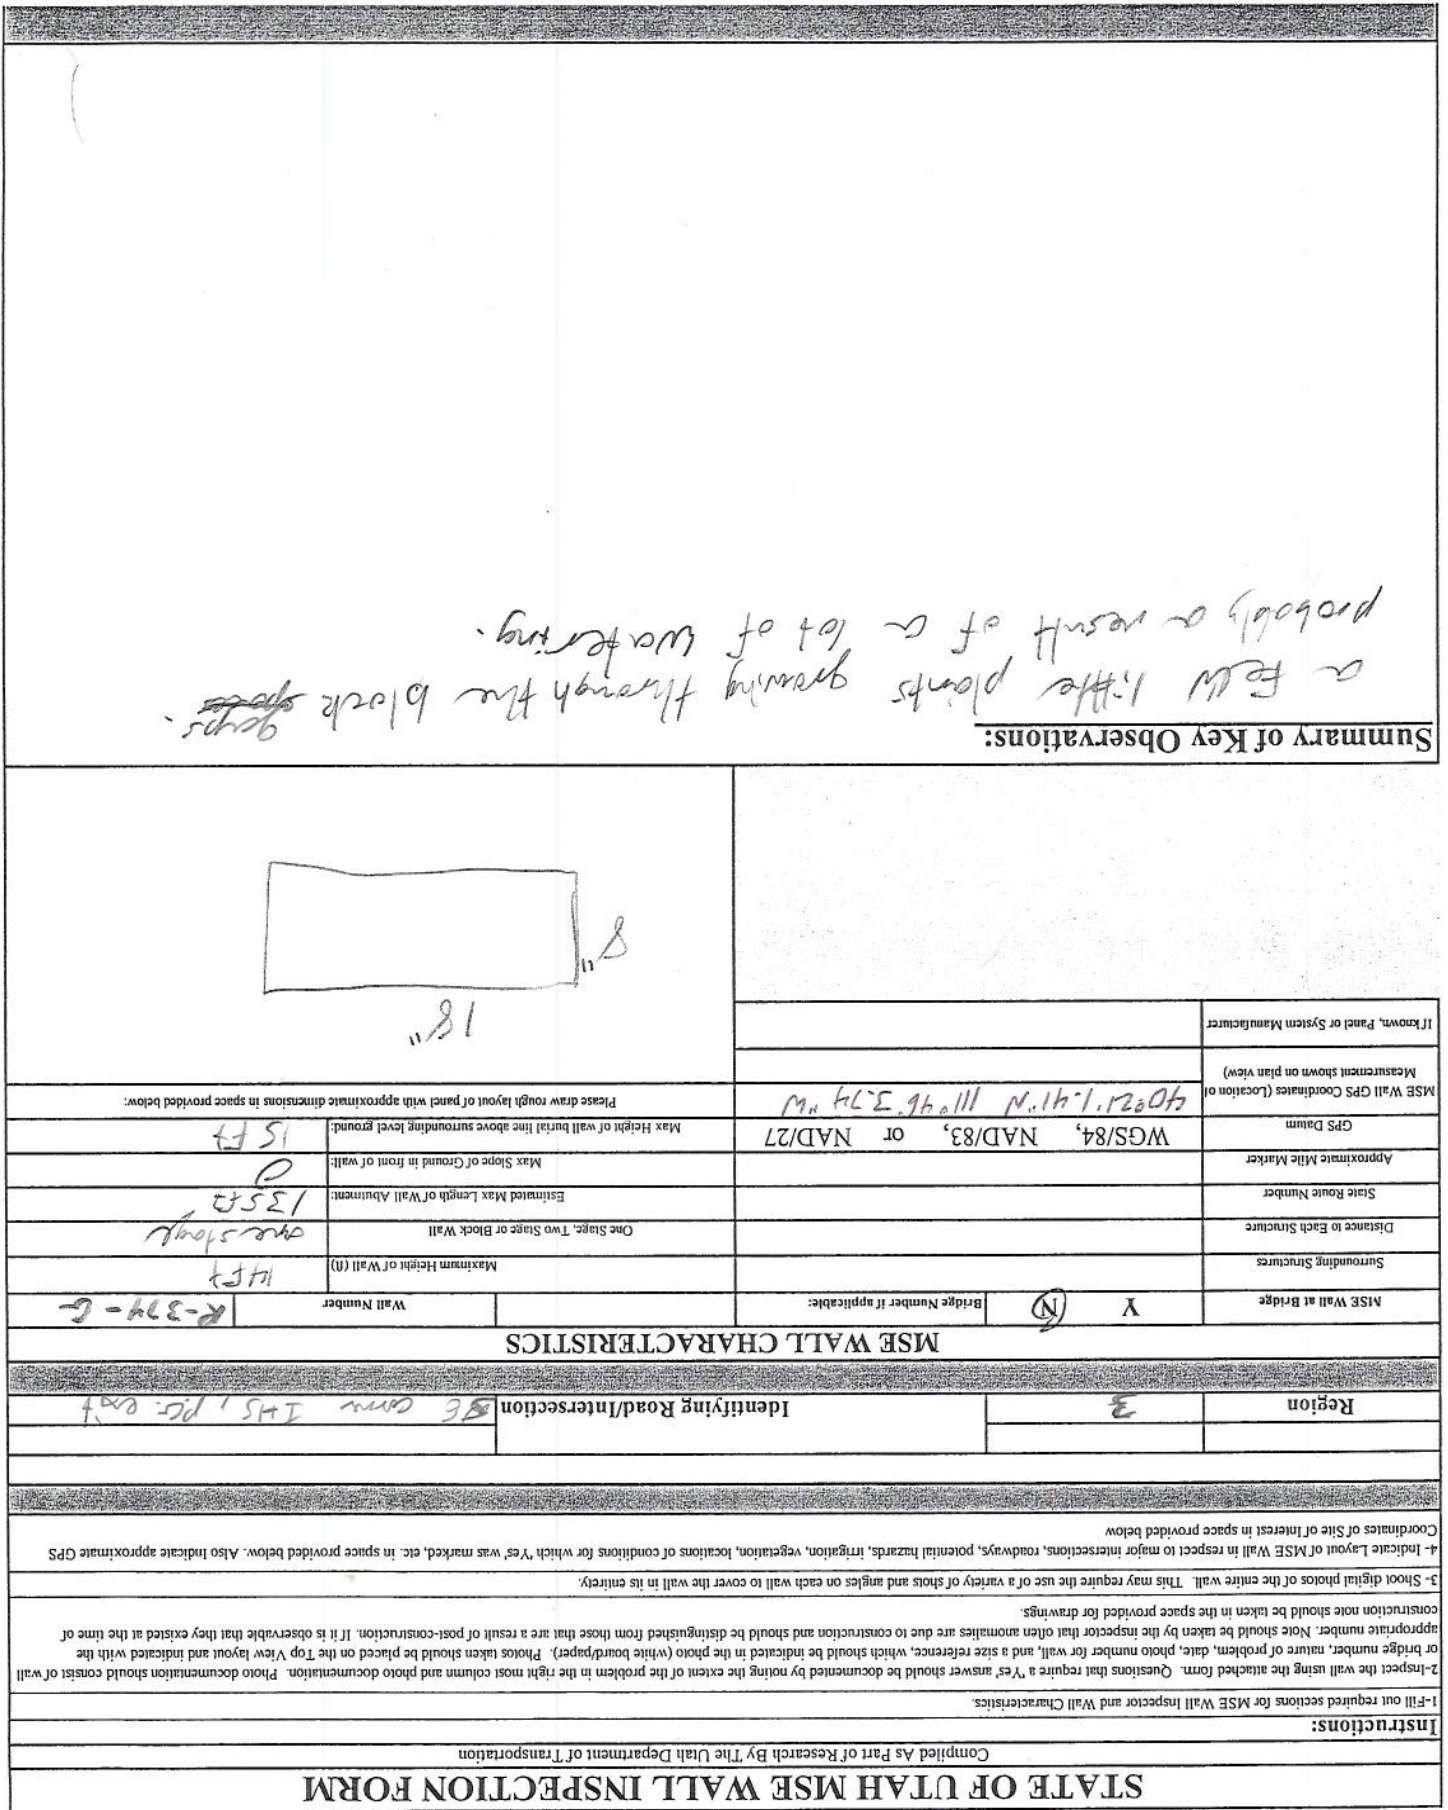 STATE OF UTAH MSE WALL INSPECTION FORM
Compiled As Part of Research By The Utah Department of Transportation
Instructions:
1-Fill out required sections for MSE Wall Inspector and Wall Characteristics.
2-Inspect the wall using the attached form. Questions that require a 'Yes' answer should be documented by noting the extent of the problem in the right most column and photo documentation. Photo documentation should consist of wall
or bridge number, nature of problem, date, photo number for wall, and a size reference, which should be indicated in the photo (white board/paper). Photos taken should be placed on the Top View layout and indicated with the
appropriate number. Note should be taken by the inspector that often anomalies are due to construction and should be distinguished from those that are a result of post-construction. If it is observable that they existed at the time of
construction note should be taken in the space provided for drawings.
3- Shoot digital photos of the entire wall. This may require the use of a variety of shots and angles on each wall to cover the wall in its entirety.
4- Indicate Layout of MSE Wall in respect to major intersections, roadways, potential hazards, irrigation, vegetation, locations of conditions for which 'Yes' was marked, etc. in space provided below. Also Indicate approximate GPS
Coordinates of Site of Interest in space provided below
Region 3 Identifying Road/Intersection SE corn I45, P.G. exit
MSE WALL CHARACTERISTICS
MSE Wall at Bridge Y N Bridge Number if applicable: Wall Number R-374-G
Surrounding Structures Maximum Height of Wall (ft) 14 FT
Distance to Each Structure One Stage, Two Stage or Block Wall one stage
State Route Number Estimated Max Length of Wall Abutment: 135 ft
Approximate Mile Marker Max Slope of Ground in front of wall: 0
GPS Datum WGS/84, NAD/83, or NAD/27 Max Height of wall burial line above surrounding level ground: 15 FT
MSE Wall GPS Coordinates (Location of Measurement shown on plan view) 40°21'1.41"N 111°46'3.74"W Please draw rough layout of panel with approximate dimensions in space provided below:
If known, Panel or System Manufacturer
18"
8"
Summary of Key Observations:
a few little plants growing through the block gaps.
probably a result of a lot of watering.